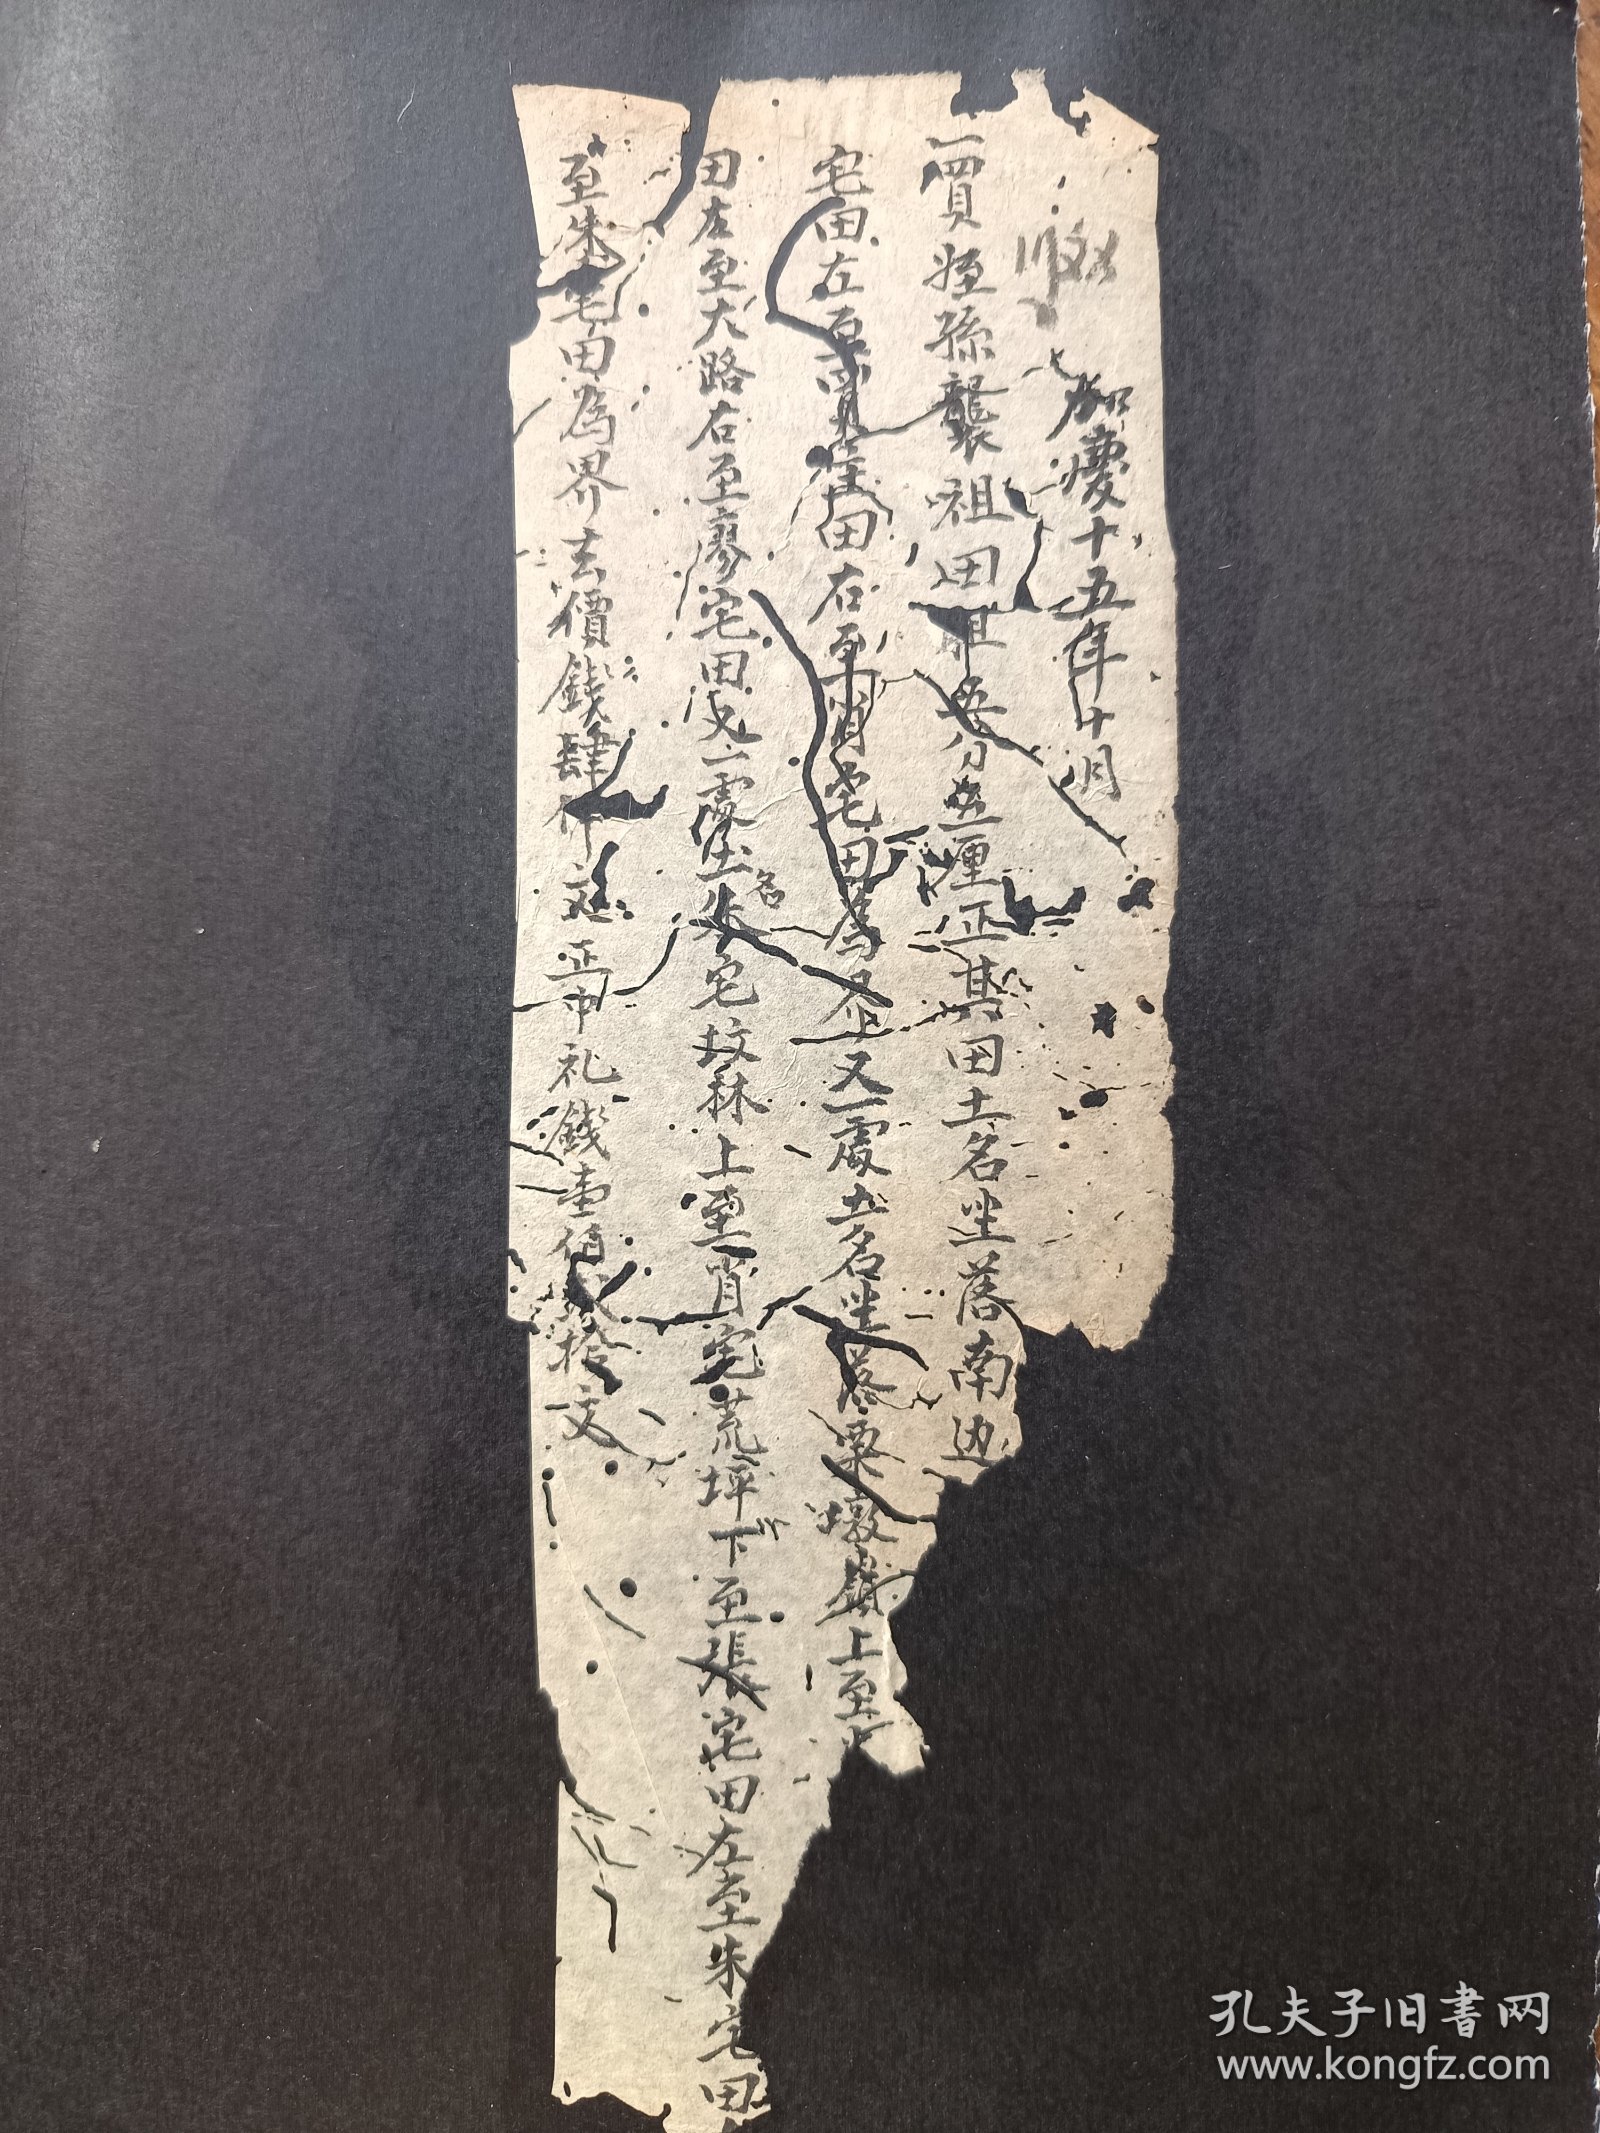 嘉慶十五年十月
一買姪孫襲祖田畢叁分叁厘正其田土名坐落南边
宅田左至買姪田右至肖宅田為界又一處土名坐落栗墩嶺上至
田左至大路右至廖宅田又一處土名朱宅坟林上至肖宅荒坪下至張宅田左至朱宅田
至朱宅田為界去價錢肆仟文正中礼錢壹佰貳拾文
孔夫子旧書网
www.kongfz.com